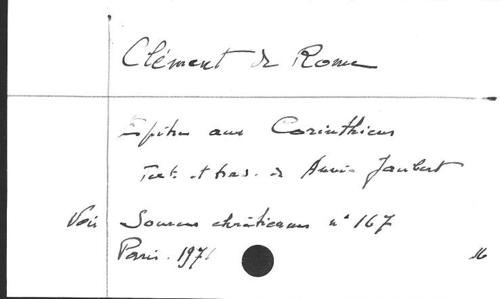 Clément de Rome
Epître aux Corinthiens
Text. et trad. de Annie Jaubert
Voir Sources chrétiennes n° 167
Paris. 1971